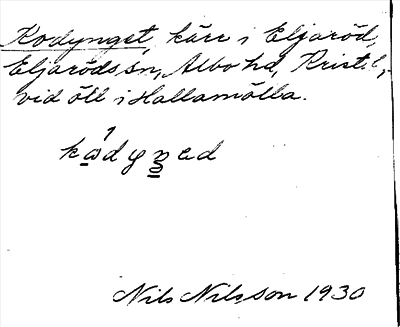 Kodynget, kärr i Eljaröd,
Eljaröds sn, Albo hd, Krist. l.,
vid öll i Hallamölla.
Nils Nilsson 1930